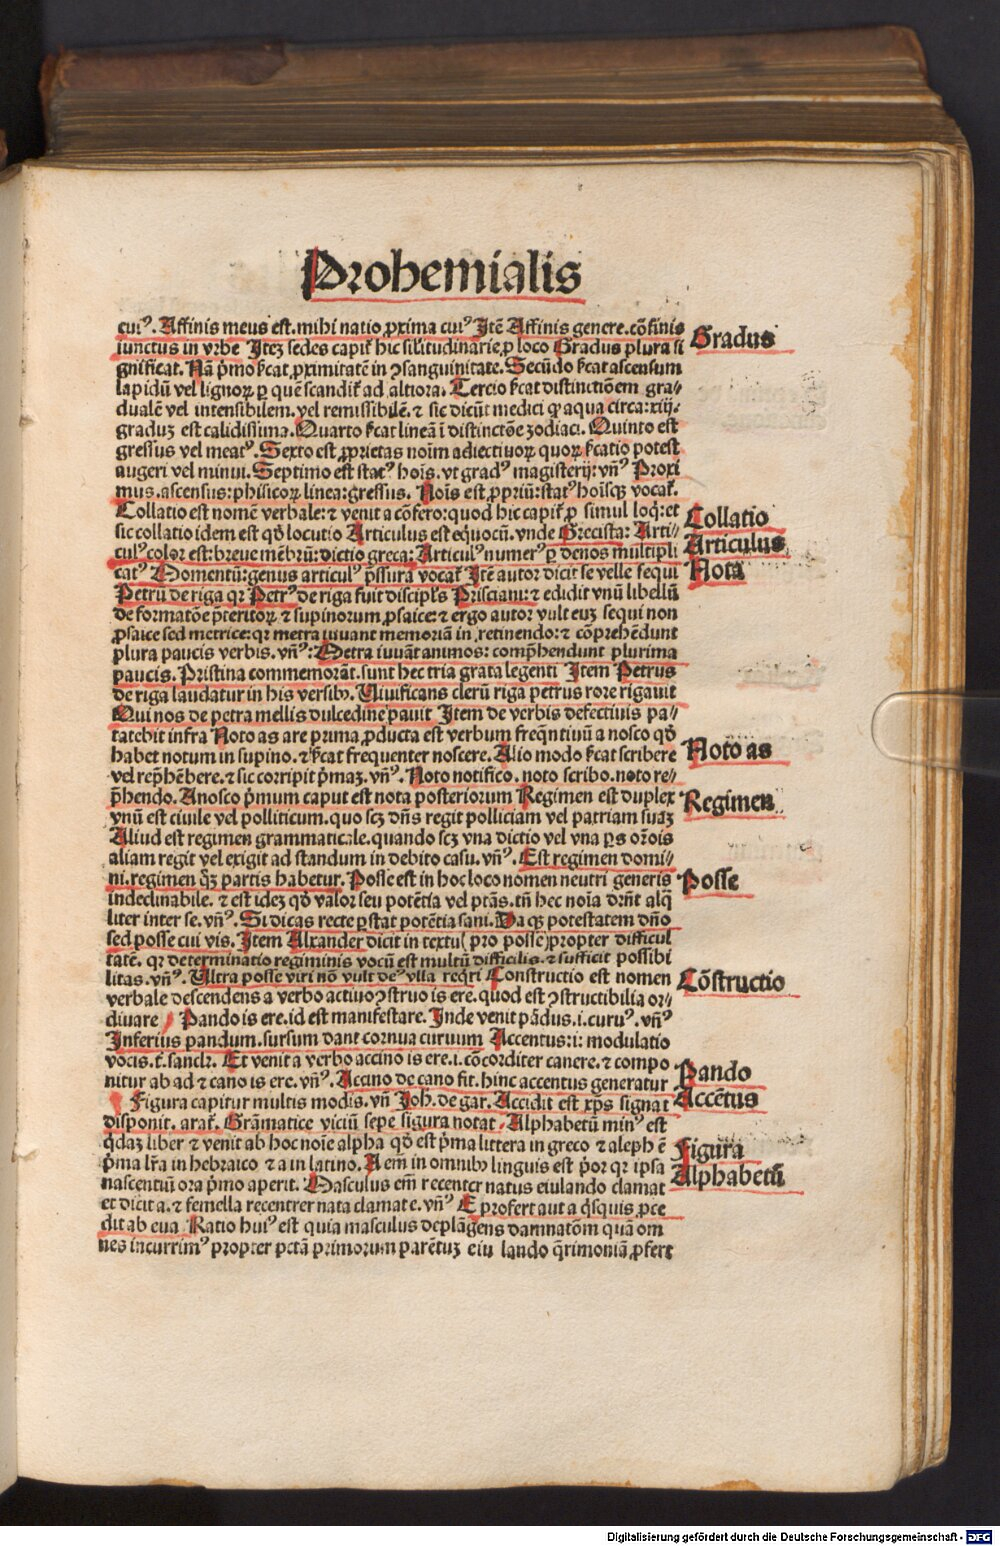 Prohemialis
cuiꝰ. Affinis meus est. mihi natio ꝓxima cuiꝰ Itē Affinis genere. cōfinis
iunctus in vrbe Iteꝫ sedes capit᷑ hic silitudinarie ꝓ loco Gradus plura si
gnificat. Nā p̄mo s̄cat ꝓximitatē in ꝯsanguinitate. Secūdo s̄cat ascensum
lapidū vel lignoꝝ ꝑ quē scandit᷑ ad altiora. Tercio s̄cat distinctiōem gra⸗
dualē vel intensibilem. vel remissibilē. ⁊ sic dicūt medici ꝙ aqua circa: xiij.
graduꝫ est calidissima. Quarto s̄cat lineā ī distinctōe zodiaci. Quinto est
gressus vel meatꝰ. Sexto est ꝓprietas noīm adiectiuoꝝ quoꝝ s̄catio potest
augeri vel minui. Septimo est statꝰ hoīs. vt gradꝰ magisterij: vn̄ꝰ Proxi
mus. ascensus: phisicoꝝ linea: gressus. Noīs est ꝓpriū: statꝰ hoīsqꝫ vocat᷑.
Collatio est nomē verbale: ⁊ venit a cōfero: quod hic capit᷑ ꝓ simul loq̄: et
sic collatio idem est qđ locutio Articulus est eq̄uocū. vnde Grecista: Arti⸗
culꝰ color est: breue mēbrū: dictio greca: Articulꝰ numerꝰ ꝑ denos multipli
catꝰ Momentū: genus articulꝰ p̄ssura vocat᷑ Itē autor dicit se velle sequi
Petrū de riga qr Petrꝰ de riga fuit discipl̄s Prisciani: ⁊ edidit vnū libellū
de formatōe p̄teritoꝝ ⁊ supinorum ꝓsaice: ⁊ ergo autor vult euꝫ sequi non
ꝓsaice sed metrice: qr metra iuuant memoriā in retinendo: ⁊ cōprehēdunt
plura paucis verbis. vn̄ꝰ: Metra iuuāt animos: comp̄hendunt plurima
paucis. Pristina commemorāt. sunt hec tria grata legenti Item Petrus
de riga laudatur in his versibꝫ. Uiuificans clerū riga petrus rore rigauit
Qui nos de petra mellis dulcedine pauit Item de verbis defectiuis pa⸗
tatebit infra Noto as are prima ꝓducta est verbum freq̄ntiuū a nosco qđ
habet notum in supino. ⁊ s̄cat frequenter noscere. Alio modo s̄cat scribere
vel rep̄hēbere. ⁊ sic corripit p̄maꝫ. vn̄ꝰ. Noto notifico. noto scribo. noto re⸗
p̄hendo. Anosco p̄mum caput est nota posteriorum Regimen est duplex
vnū est ciuile vel polliticum. quo scꝫ dn̄s regit polliciam vel patriam suaꝫ
Aliud est regimen grammaticale. quando scꝫ vna dictio vel vna ꝑs or̄ōis
aliam regit vel exigit ad standum in debito casu. vn̄ꝰ. Est regimen domi⸗
ni. regimen q̄ꝫ partis habetur. Posse est in hoc loco nomen neutri generis
indeclinabile. ⁊ est ideꝫ qđ valor seu potētia vel ptās. tn̄ hec noīa dr̄nt alq̄
liter inter se. vn̄ꝰ. Si dicas recte ꝑstat potētia sani. Da qꝫ potestatem dn̄o
sed posse cui vis. Item Alxander dicit in textu (pro posse) propter difficul
tatē. qr determinatio regiminis vocū est multū difficilis. ⁊ sufficit possibi
litas. vn̄ꝰ. Ultra posse viri nō vult deꝰ vlla req̄ri Constructio est nomen
verbale descendens a verbo actiuo ꝯstruo is ere. quod est ꝯstructibilia or⸗
diuare Pando is ere. id est manifestare. Inde venit pādus. i. curuꝰ. vn̄ꝰ
Inferius pandum. sursum dant cornua curuum Accentus: i: modulatio
vocis. Et venit a verbo accino is ere. i. cōcorditer canere. ⁊ compo
nitur ab ad ⁊ cano is ere. vn̄ꝰ. Accino de cano fit. hinc accentus generatur
Figura capitur multis modis. vn̄ Joh. de gar. Accidit est xp̄s signat
disponit. arat᷑. Grāmatice viciū sepe figura notat. Alphabetū minꝰ est
q̄daꝫ liber ⁊ venit ab hoc noīe alpha qđ est p̄ma littera in greco ⁊ aleph ē
p̄ma lr̄a in hebraico ⁊ a in latino. A em in omnibꝫ linguis est p̄or qr ipsa
nascentiū ora p̄mo aperit. Masculus em̄ recenter natus eiulando clamat
et dicit a. ⁊ femella recentrer nata clamat e. vn̄ꝰ E profert aut a q̄squis ꝓce
dit ab eua Ratio huiꝰ est quia masculus deplāgens damnatōm quā om
nes incurrimꝰ propter pctā primorum parētuꝫ eiu lando q̄rimoniā ꝓfert
Gradus
Collatio
Articulus
Nota
Noto as
Regimen
Posse
Cōstructio
Pando
Accētus
Figura
Alphabetū
Digitalisierung gefördert durch die Deutsche Forschungsgemeinschaft - DFG